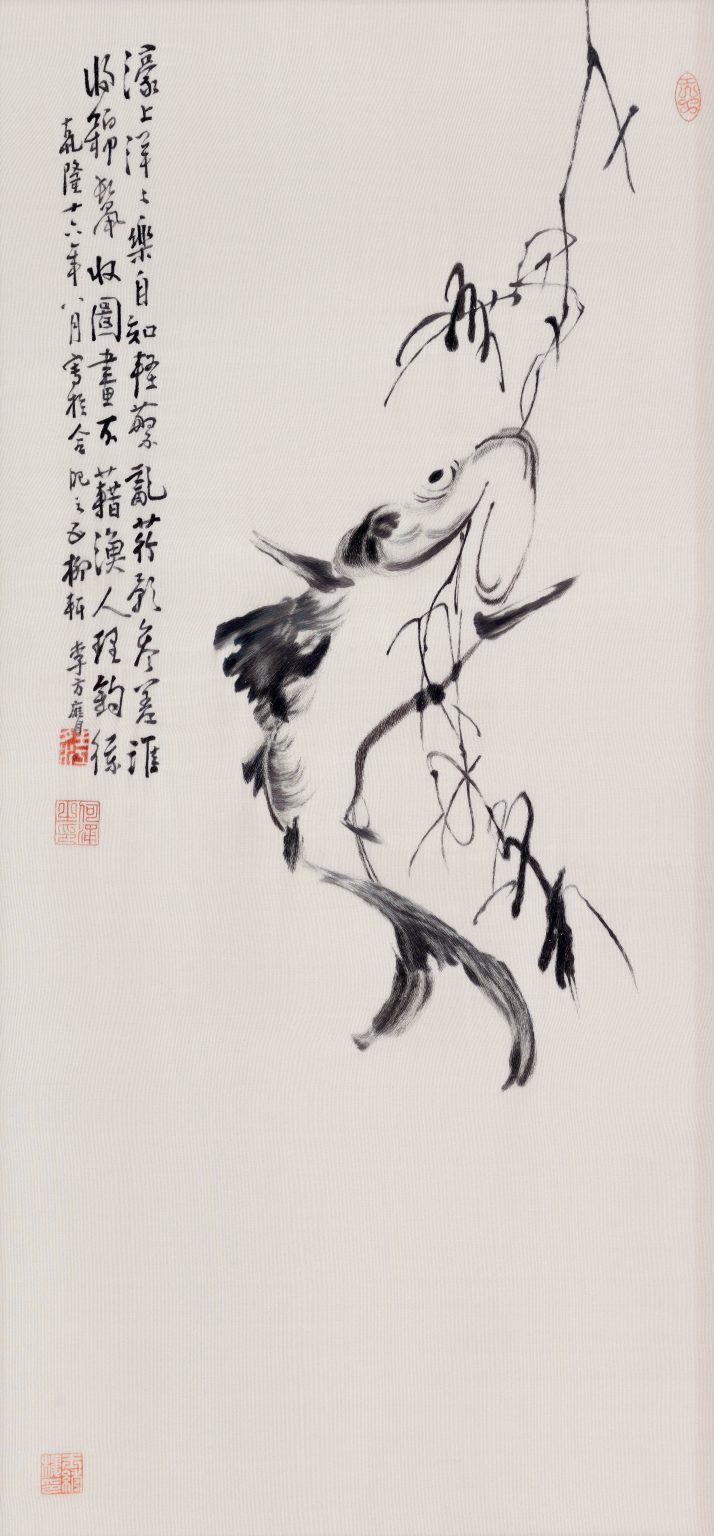 濠上洋〻樂自知輕蘩亂荇影參差誰
將錦鬣收圖畫不藉漁人理鈎絲
乾隆十六年八月寫於合肥之五柳軒 李方膺